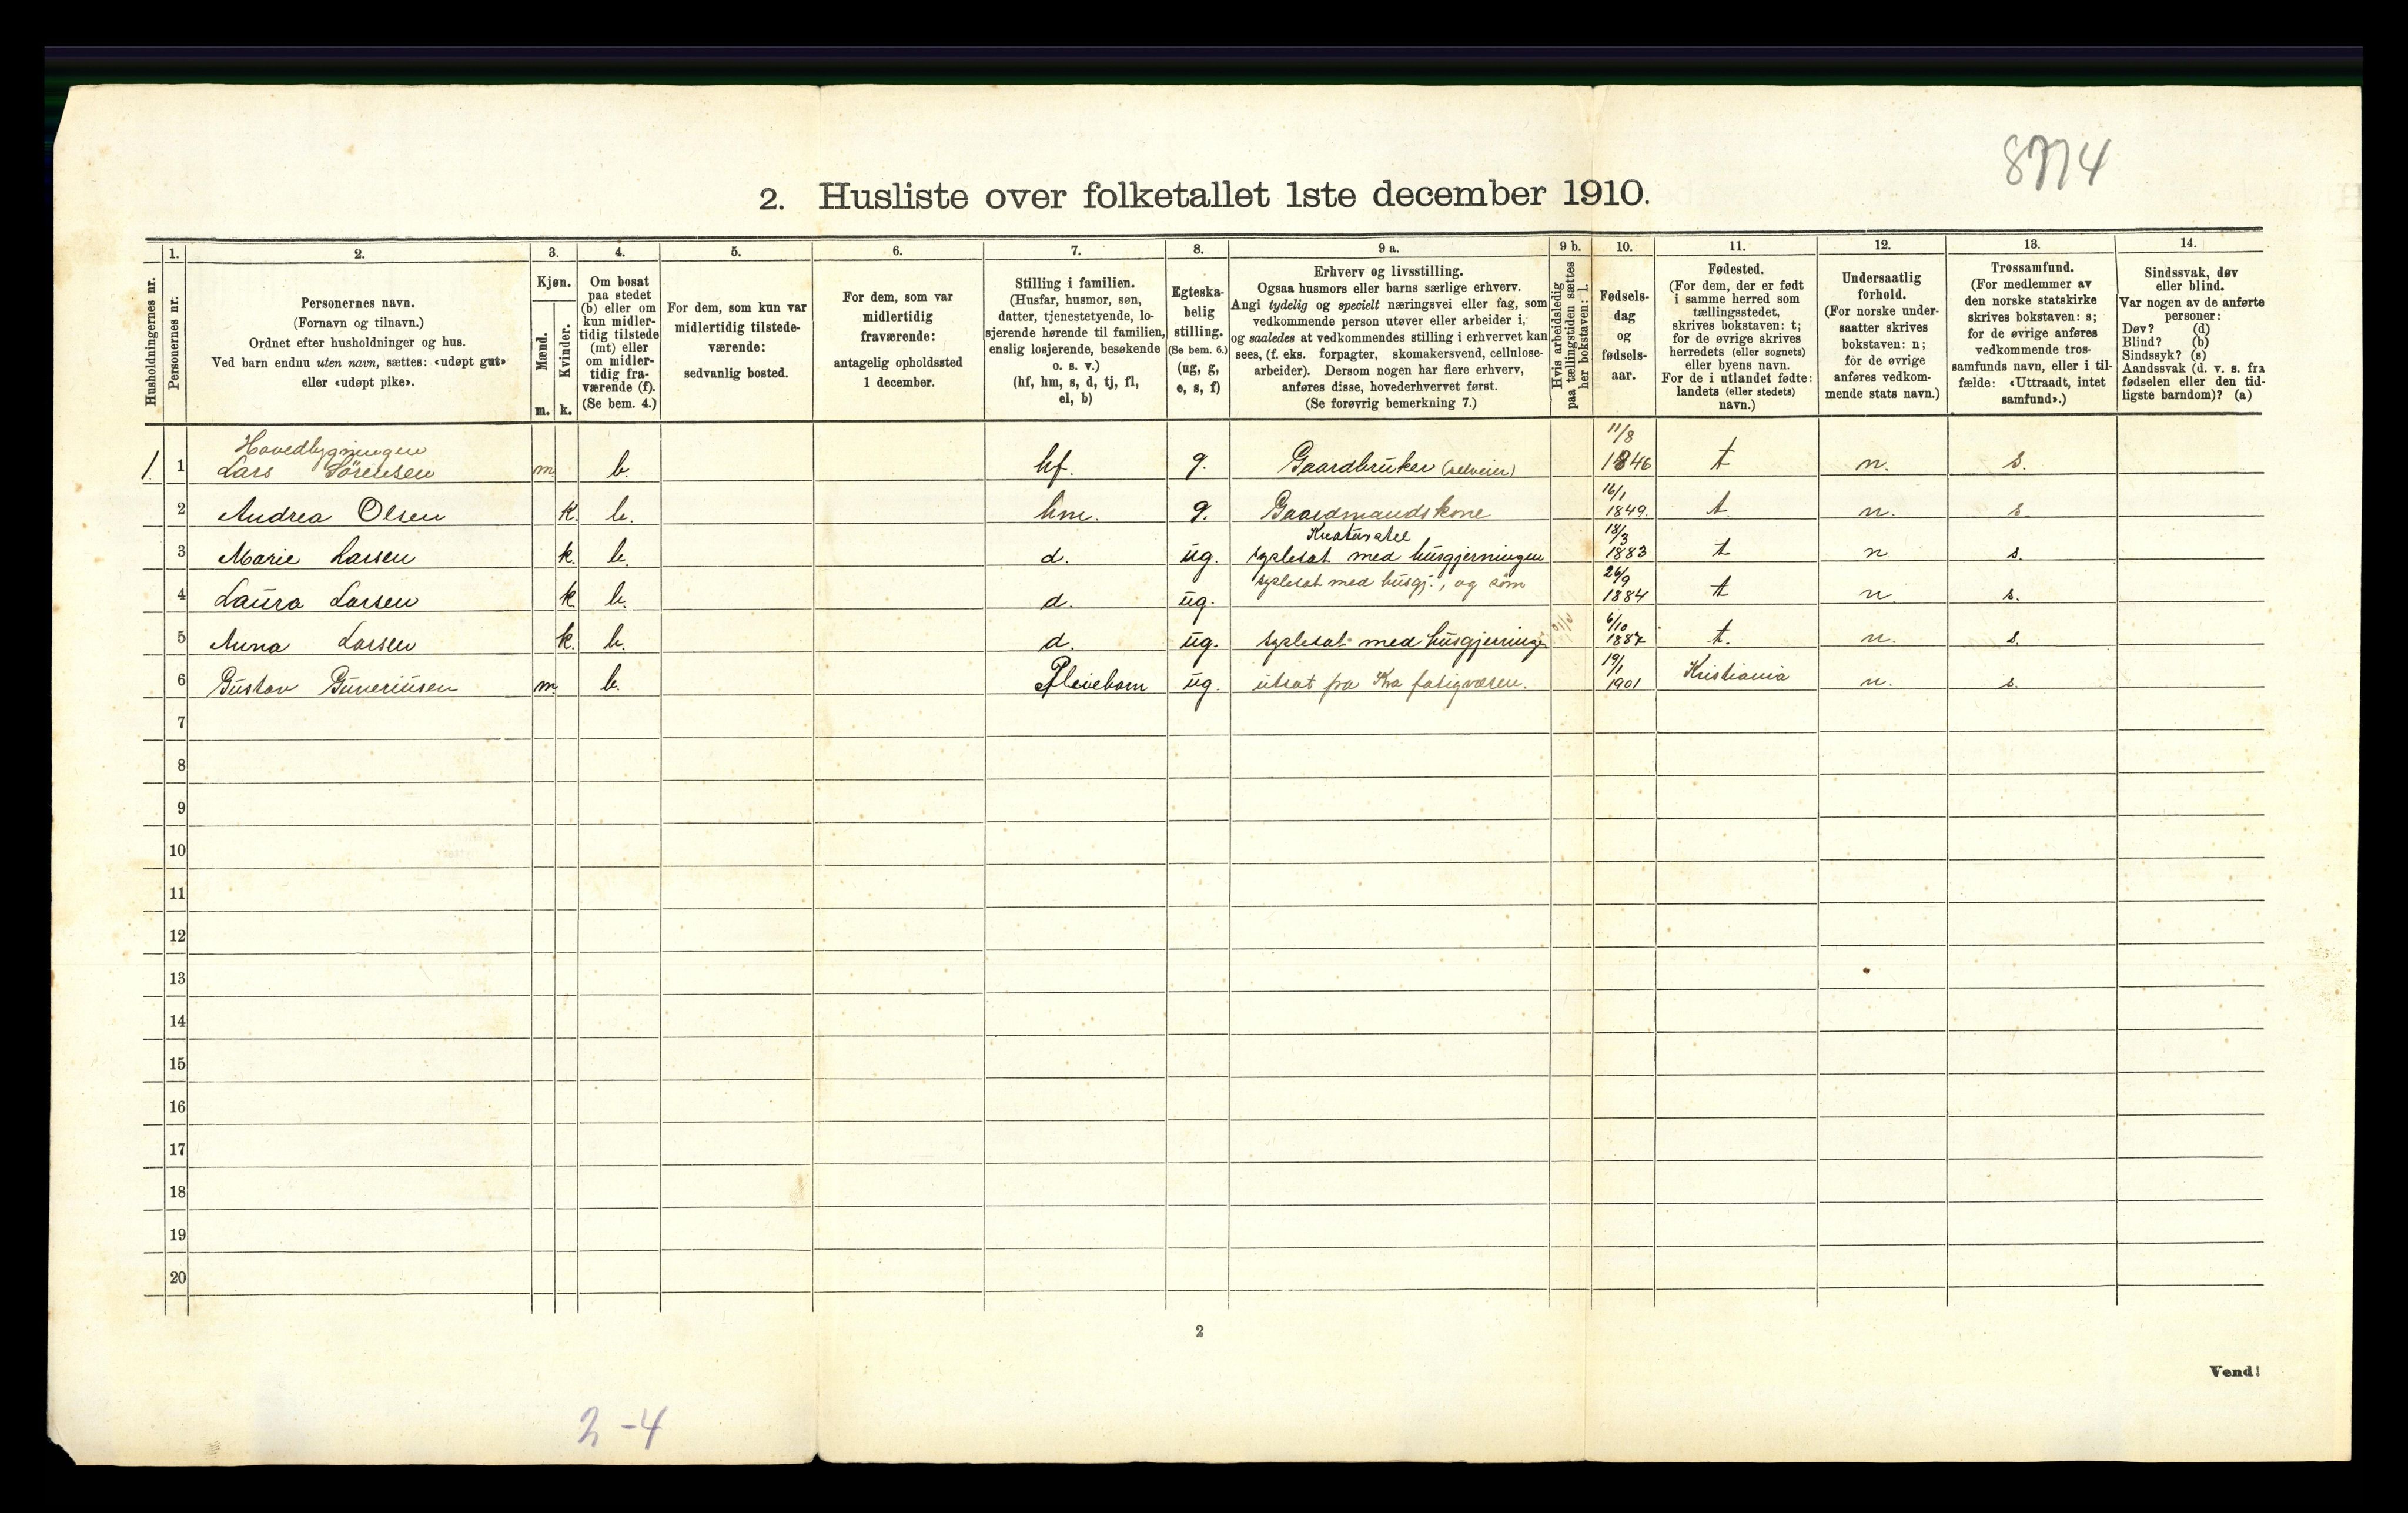 8774
2. Husliste over folketallet 1ste december 1910.
Husholdningernes nr.
1.
Personernes nr.
2.
Personernes navn.
(Fornavn og tilnavn.)
Ordnet efter husholdninger og hus.
Ved barn endnu uten navn, sættes: «udøpt gut»
eller «udøpt pike».
3.
Kjøn.
Mænd.
Kvinder.
m. k.
4.
Om bosat
paa stedet
(b) eller om
kun midler-
tidig tilstede
(mt) eller
om midler-
tidig fra-
værende (f).
(Se bem. 4.)
5.
For dem, som kun var
midlertidig tilstede-
værende:
sedvanlig bosted.
6.
For dem, som var
midlertidig
fraværende:
antagelig opholdssted
1 december.
7.
Stilling i familien.
(Husfar, husmor, søn,
datter, tjenestetyende, lo-
sjerende hørende til familien,
enslig losjerende, besøkende
o. s. v.)
(hf, hm, s, d, tj, fl,
el, b)
8.
Egteska-
belig
stilling.
(Se bem. 6.)
(ug, g,
e, s, f)
9 a.
Erhverv og livsstilling.
Ogsaa husmors eller barns særlige erhverv.
Angi tydelig og specielt næringsvei eller fag, som
vedkommende person utøver eller arbeider i,
og saaledes at vedkommendes stilling i erhvervet kan
sees, (f. eks. forpagter, skomakersvend, cellulose-
arbeider). Dersom nogen har flere erhverv,
anføres disse, hovederhvervet først.
(Se forøvrig bemerkning 7.)
9 b.
Hvis arbeidsledig
paa tællingstiden sættes
her bokstaven: l.
10.
Fødsels-
dag
og
fødsels-
aar.
11.
Fødested.
(For dem, der er født
i samme herred som
tællingsstedet,
skrives bokstaven: t;
for de øvrige skrives
herredets (eller sognets)
eller byens navn.
For de i utlandet fødte:
landets (eller stedets)
navn.)
12.
Undersaatlig
forhold.
(For norske under-
saatter skrives
bokstaven: n;
for de øvrige
anføres vedkom-
mende stats navn.)
13.
Trossamfund.
(For medlemmer av
den norske statskirke
skrives bokstaven: s;
for de øvrige anføres
vedkommende tros-
samfunds navn, eller i til-
fælde: «Uttraadt, intet
samfund».)
14.
Sindssvak, døv
eller blind.
Var nogen av de anførte
personer:
Døv? (d)
Blind? (b)
Sindssyk? (s)
Aandssvak (d. v. s. fra
fødselen eller den tid-
ligste barndom)? (a)
Hovedbygningen
1. 1 Lars Sörensen m b. hf. g. Gaardbruker (selveier) 11/8 1846 t n. s.
2 Andrea Olsen k. b. hm. g. Gaardmandskone 16/1 1849. t. n. s
Kreaturstel
3 Marie Larsen k. b. d. ug. sysselsat med husgjerningen 18/3 1883 t n s.
4 Laura Larsen k b. d. ug. sysselsat med husgj., og som 26/9 1884 t n. s.
5 Anna Larsen k. b. d. ug. sysselsat med husgjerninge 6/10 1887 t. n. s.
6 Gustav Guneriusen m. b. Pleiebarn ug. utsat fra Kra fatigvæsen. 19/1 1901 Kristiania n. s.
7
8
9
10
11
12
13
14
15
16
17
18
19
20
2
Vend!
2-4